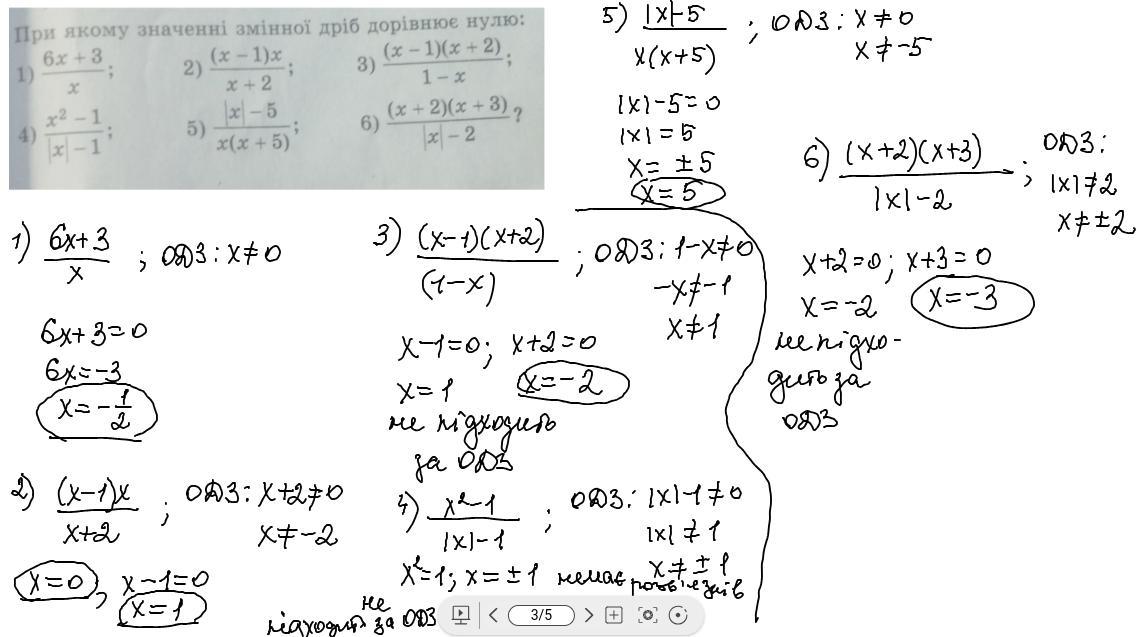 При якому значенні змінної дріб дорівнює нулю:
1) (6x + 3)/x; 2) ((x − 1)x)/(x + 2); 3) ((x − 1)(x + 2))/(1 − x);
4) (x² − 1)/(|x| − 1); 5) (|x| − 5)/(x(x + 5)); 6) ((x + 2)(x + 3))/(|x| − 2)?
1) (6x+3)/x ; ОДЗ: x≠0
6x+3=0
6x=-3
x=-1/2
2) ((x-1)x)/(x+2) ; ОДЗ: x+2≠0
x≠-2
x=0, x-1=0
x=1
3) ((x-1)(x+2))/(1-x) ; ОДЗ: 1-x≠0
-x≠-1
x≠1
x-1=0; x+2=0
x=1 x=-2
не підходить
за ОДЗ
4) (x²-1)/(|x|-1) ; ОДЗ: |x|-1≠0
|x|≠1
x≠±1
x²=1; x=±1 немає розв'язків
не
підходить за ОДЗ
5) (|x|-5)/(x(x+5)) ; ОДЗ: x≠0
x≠-5
|x|-5=0
|x|=5
x=±5
x=5
6) ((x+2)(x+3))/(|x|-2) ; ОДЗ:
|x|≠2
x≠±2
x+2=0; x+3=0
x=-2 x=-3
не підхо-
дить за
ОДЗ
3/5